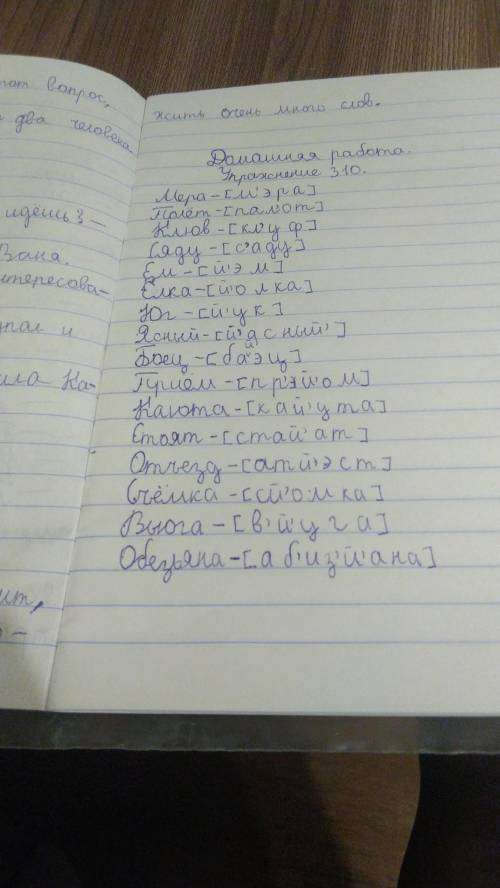 тот вопрос,
два человека.
идёшь? –
Ваня.
нтересова-
упал и
ила Ка-
ит,
жить очень много слов.
Домашняя работа.
Упражнение 310.
Мера-[м'эра]
Полёт-[пал'от]
Клюв-[кл'уф]
Сяду-[с'аду]
Ем-[й'эм]
Ёлка-[й'олка]
Юг-[й'ук]
Ясный-[й'асный']
Боец-[бай'эц]
Приём-[пр'эй'ом]
Каюта-[кай'ута]
Стоят-[стай'ат]
Отъезд-[атй'эст]
Съёмка-[сй'омка]
Вьюга-[в'й'уга]
Обезьяна-[аб'из'й'ана]